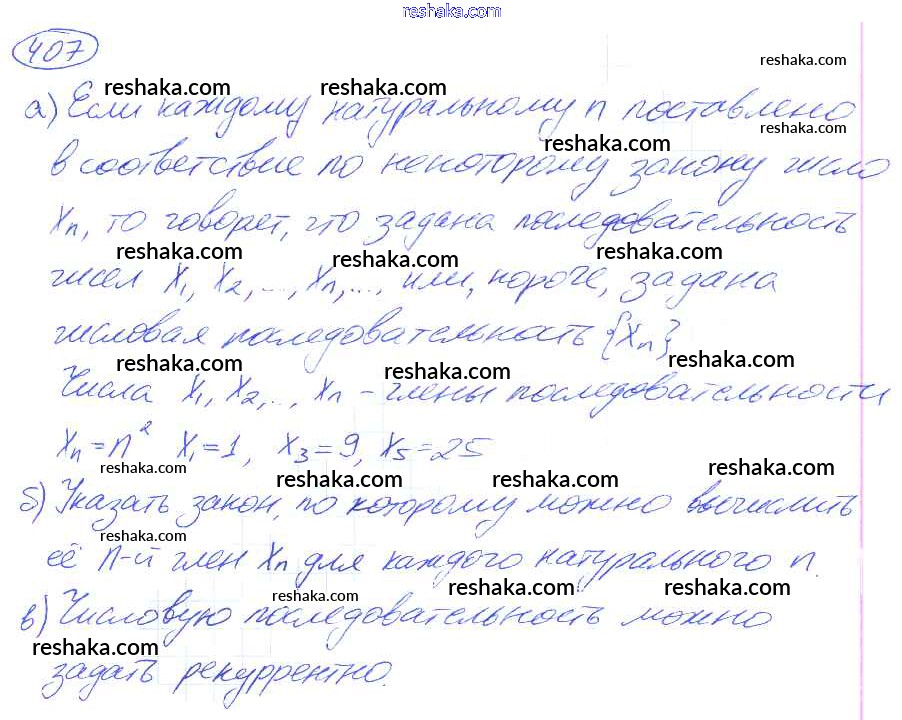 reshaka.com
407
reshaka.com
reshaka.com reshaka.com
а) Если каждому натуральному n поставлено
reshaka.com
reshaka.com
в соответствие по некоторому закону число
xn, то говорет, что задана последовательность
reshaka.com reshaka.com reshaka.com
чисел x1, x2, ..., xn, ..., или, короче, задана
числовая последовательность {xn}
reshaka.com reshaka.com reshaka.com
Числа x1, x2, .., xn - члены последовательности
xn = n² x1=1, x3=9, x5=25
reshaka.com reshaka.com reshaka.com reshaka.com
б) Указать закон, по которому можно вычислить
reshaka.com
её n-й член xn для каждого натурального n.
reshaka.com reshaka.com reshaka.com
в) Числовую последовательность можно
reshaka.com
задать рекуррентно.